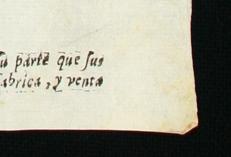 su parte que sus
fabrica, y venta